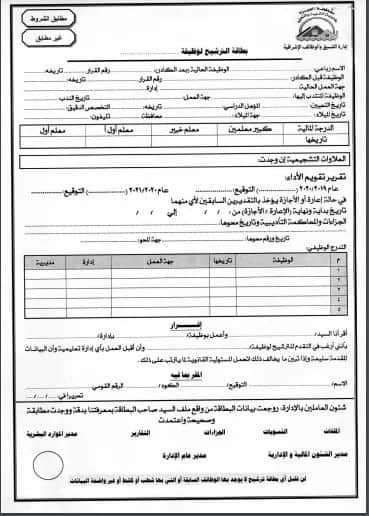 مطابق للشروط
غير مطابق
إدارة التنسيق والوظائف الإشرافية
بطاقة الترشيح لوظيفة
اسم رباعي: الوظيفة الحالية بعد الكادر: رقم القرار تاريخه:
الوظيفة قبل الكادر: رقم القرار تاريخه:
جهة العمل الحالية إدارة
الوظيفة المنتدب إليها: جهة العمل: تاريخ الندب
تاريخ التعيين: المؤهل الدراسي: تاريخه: التخصص الدقيق:
تاريخ الميلاد: جهة الميلاد: محافظة تليفون:
الدرجة المالية كبير معلمين معلم خبير معلم أول أ معلم أول
تاريخها
العلاوات التشجيعية إن وجدت:
تقرير تقويم الأداء:
عام ٢٠١٩/٢٠٢٠ (..............) التوقيع: عام ٢٠٢٠/٢٠٢١ (..............) التوقيع:
في حالة إعارة أو الأجازة يؤخذ بالتقديرين السابقين لأي منهما
تاريخ بداية ونهاية (الإعارة / الأجازة) من: / / إلي / /
الجزاءات والمحاكمة التأديبية وتاريخ محوها:
تاريخ ورقم محوها: جهة المحو:
التدرج الوظيفي:
م الوظيفة تاريخها جهة العمل إدارة مديرية
١
٢
٣
٤
٥
إقـــرار
أقر أنا السيد/ وأعمل بوظيفة/ بإدارة/
بأنني أرغب في التقدم للترشيح لوظيفة/ وأن أقبل العمل بأي إدارة تعليمية وأن البيانات
المقدمة سليمة وإذا تبين ما يخالف ذلك أتحمل المسئولية القانونية لما يترتب على ذلك.
المقر بما فيه
الاسم/ التوقيع/ الكود/ الرقم القومي
تحريرا في / /
شئون العاملين بالإدارة: روجعت بيانات البطاقة من واقع ملف السيد صاحب البطاقة بمعرفتنا بدقة ووجدت مطابقة
وصحيحة واعتمدت
الملفات التسويات الجزاءات التقارير مدير الموارد البشرية
مدير الشئون المالية و الإدارية مدير عام الإدارة
لن تقبل أي بطاقة ترشيح لا يوجد بها الوظائف السابقة أو التي بها شطب أو كشط أو غير واضحة البيانات